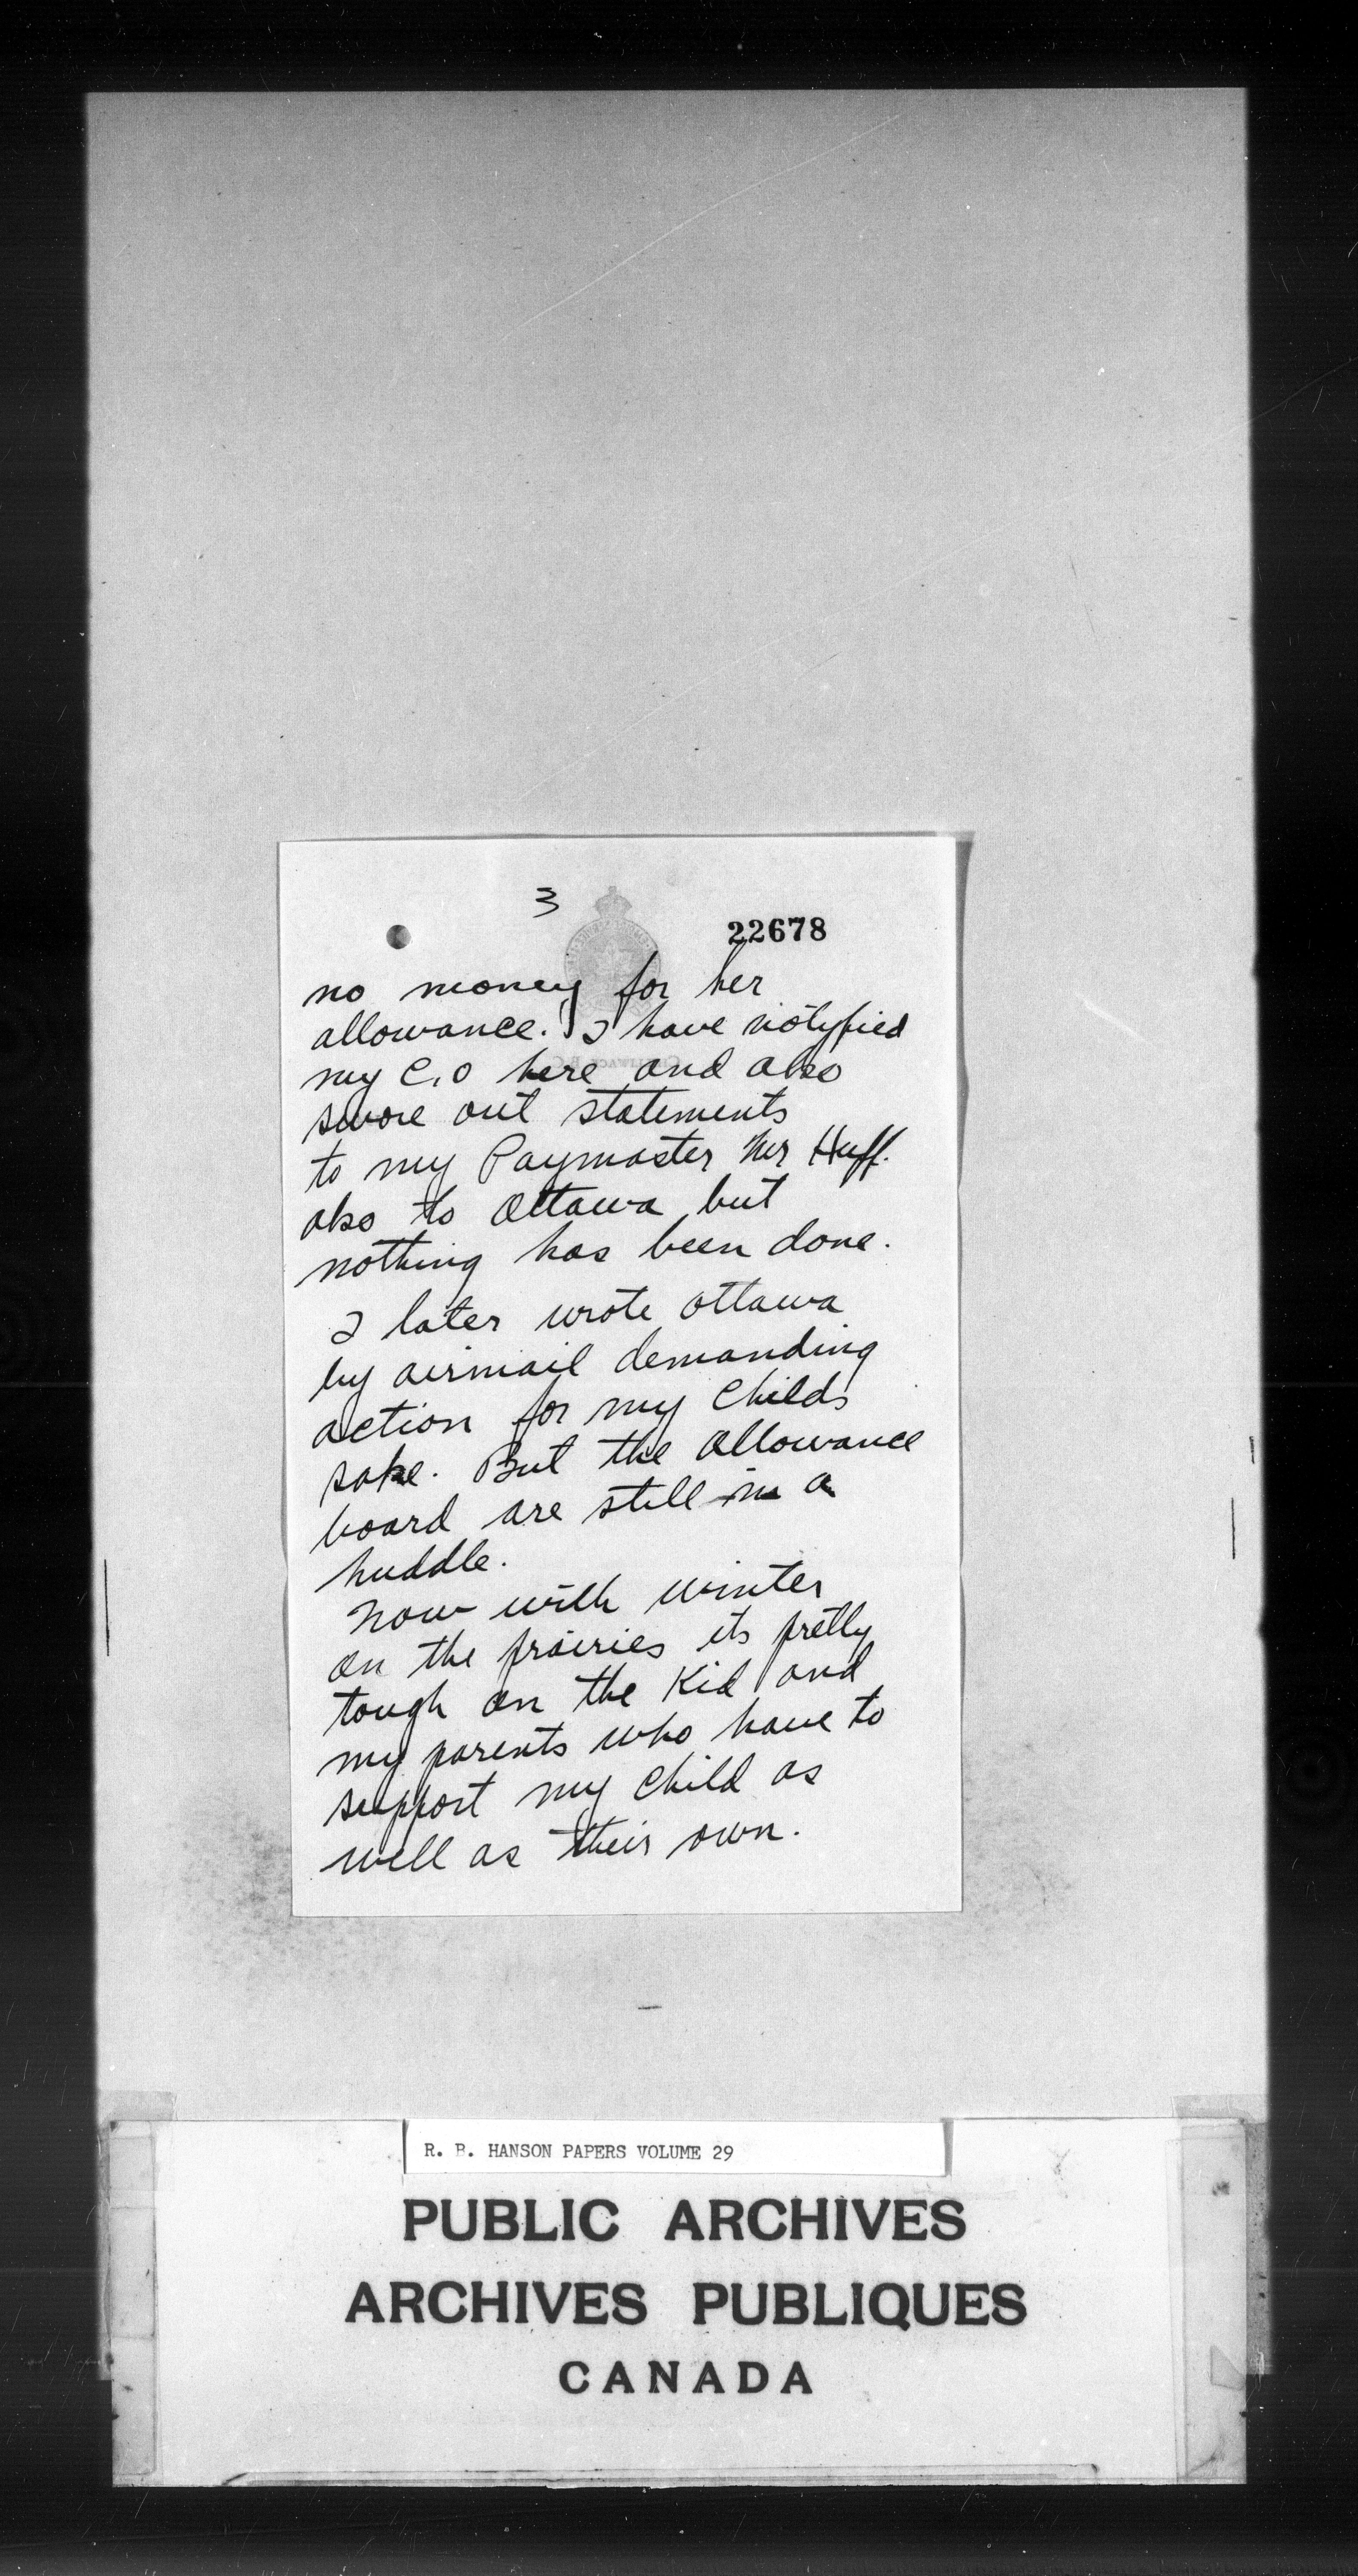 3
22678
no money for her
allowance. I have notyfied
my C.O here and also
swore out statements
to my Paymaster Mr Huff.
also to Ottawa but
nothing has been done.
I later wrote Ottawa
by airmail demanding
action for my Childs
sake. But the Allowance
board are still in a
huddle.
Now with winter
on the prairies its pretty
tough on the Kid and
my parents who have to
support my Child as
well as their own.
R. B. HANSON PAPERS VOLUME 29
PUBLIC ARCHIVES
ARCHIVES PUBLIQUES
CANADA